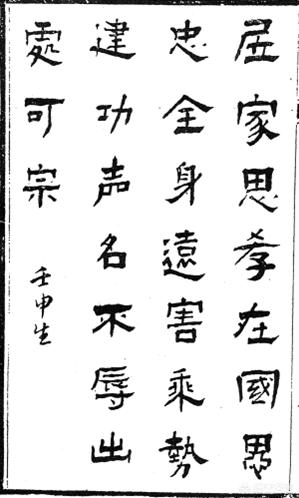 居家思孝在國思
忠全身遠害乘勢
建功声名不辱出
處可宗
壬申生